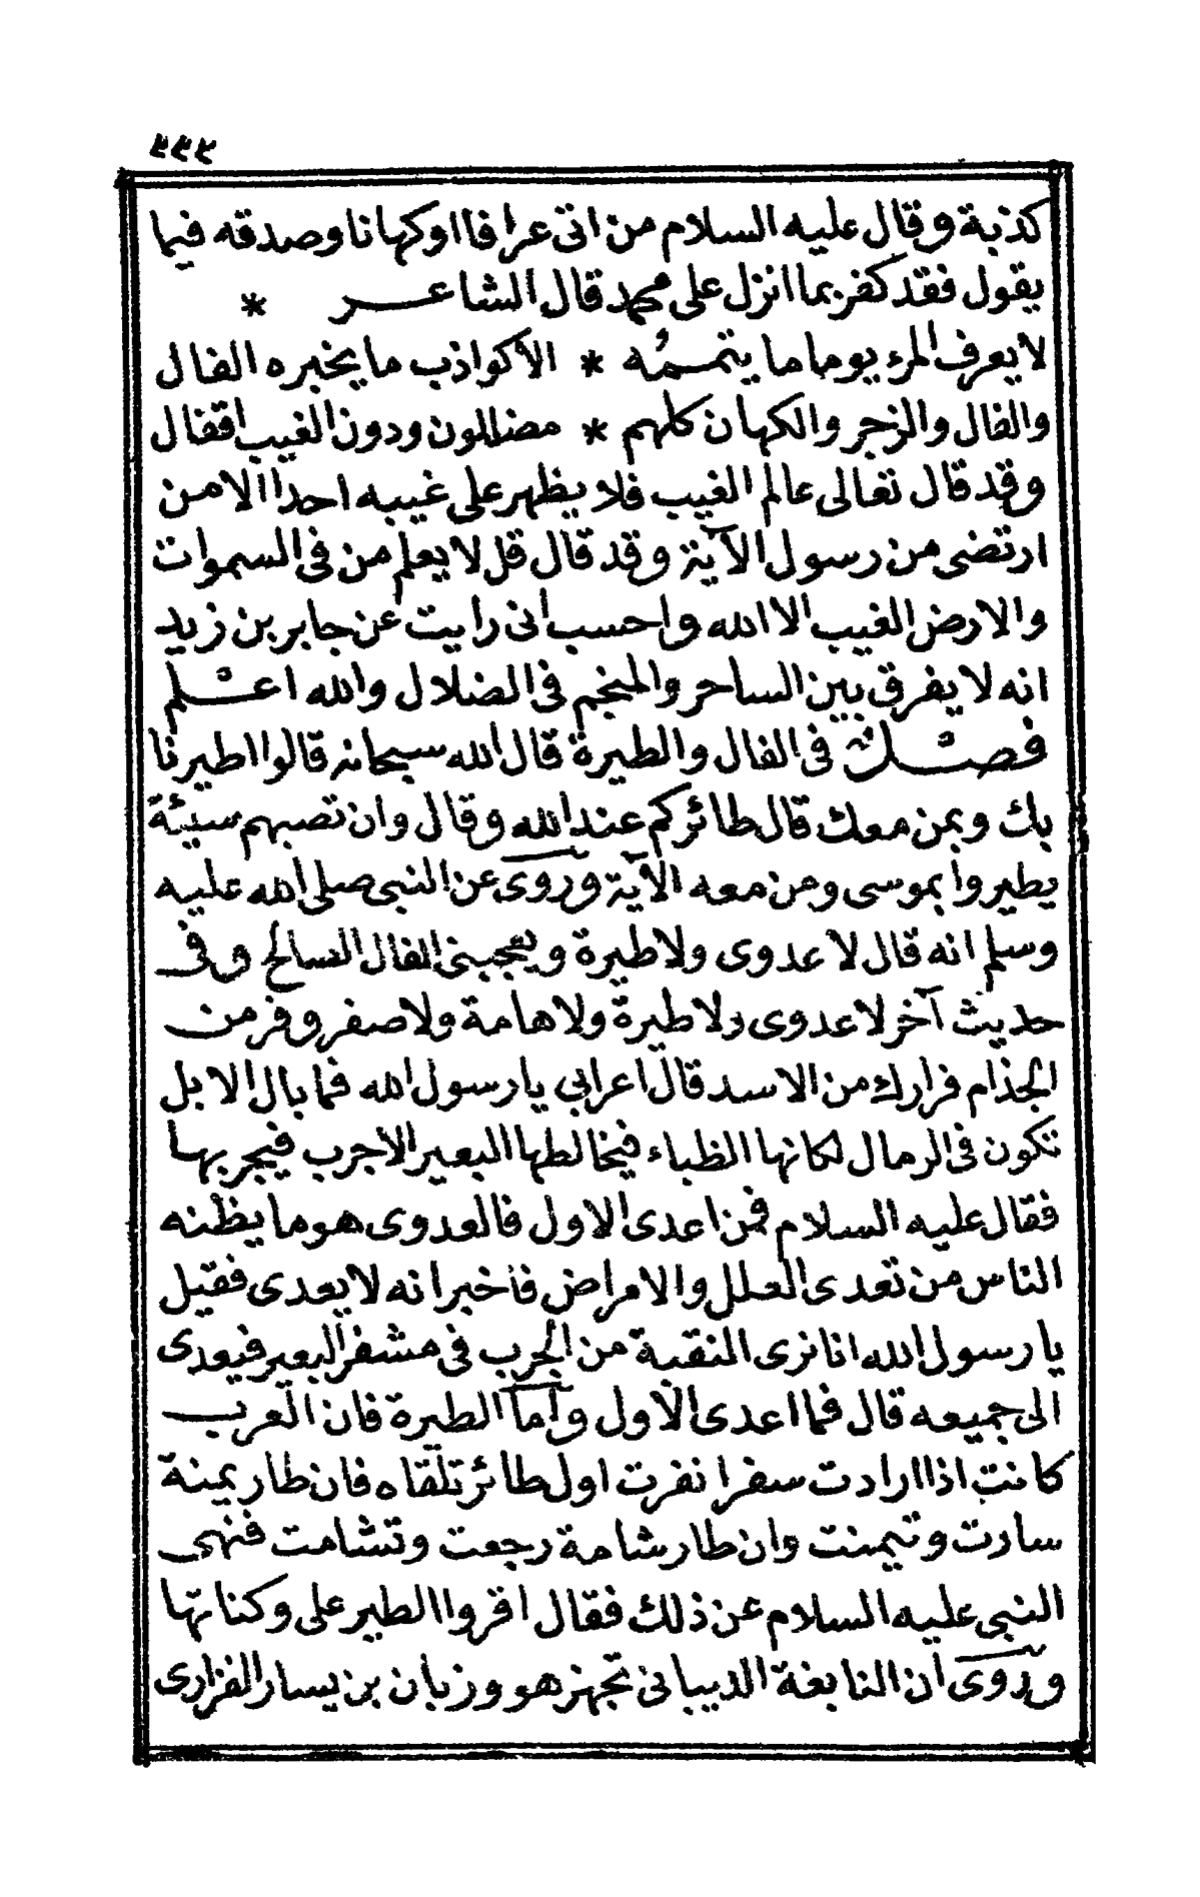 ٢٢٢
كذبة وقال عليه السلام من اتى عرافا اوكهانا وصدقه فيما
يقول فقد كفر بما انزل على محمد قال الشاعر *
لا يعرف المرء يوما ما يتممُه * الا كواذب ما يخبره الفال
والفال والزجر والكهان كلهم * مضاللون ودون الغيب اقفال
وقد قال تعالى عالم الغيب فلا يظهر على غيبه احدا الا من
ارتضى من رسول الآية وقد قال قل لا يعلم من فى السموات
والارض الغيب الا الله واحسب انى رايت عن جابر بن زيد
انه لا يفرق بين الساحر والمنجم فى الضلال والله اعلم
فصل فى الفال والطيرة قال الله سبحانه قالوا اطيرنا
بك وبمن معك قال طائركم عند الله وقال وان تصبهم سيئة
يطيروا بموسى ومن معه الآية وروى عن النبى صلى الله عليه
وسلم انه قال لا عدوى ولا طيرة ويعجبنى الفال الصالح وفى
حديث آخر لا عدوى ولا طيرة ولا هامة ولا صفر وفر من
الجذام فرارك من الاسد قال اعرابي يا رسول الله فما بال الابل
تكون فى الرمال لكانها الظباء فيخالطها البعير الاجرب فيجربها
فقال عليه السلام فمن اعدى الاول فالعدوى هو ما يظنه
الناس من تعدى العلل والامراض فأخبر انه لا يعدى فقيل
يا رسول الله انا نرى النقبة من الجرب فى مشفر البعير فيعدى
الى جميعه قال فما اعدى الاول وأما الطيرة فان العرب
كانت اذا ارادت سفرا نفرت اول طائر تلقاه فان طار يمنة
سارت وتيمنت وان طار شامة رجعت وتشامت فنهى
النبى عليه السلام عن ذلك فقال اقروا الطير على وكناتها
وروى ان النابغة الذيبانى تجهز هو وزبان بن يسار الفزارى